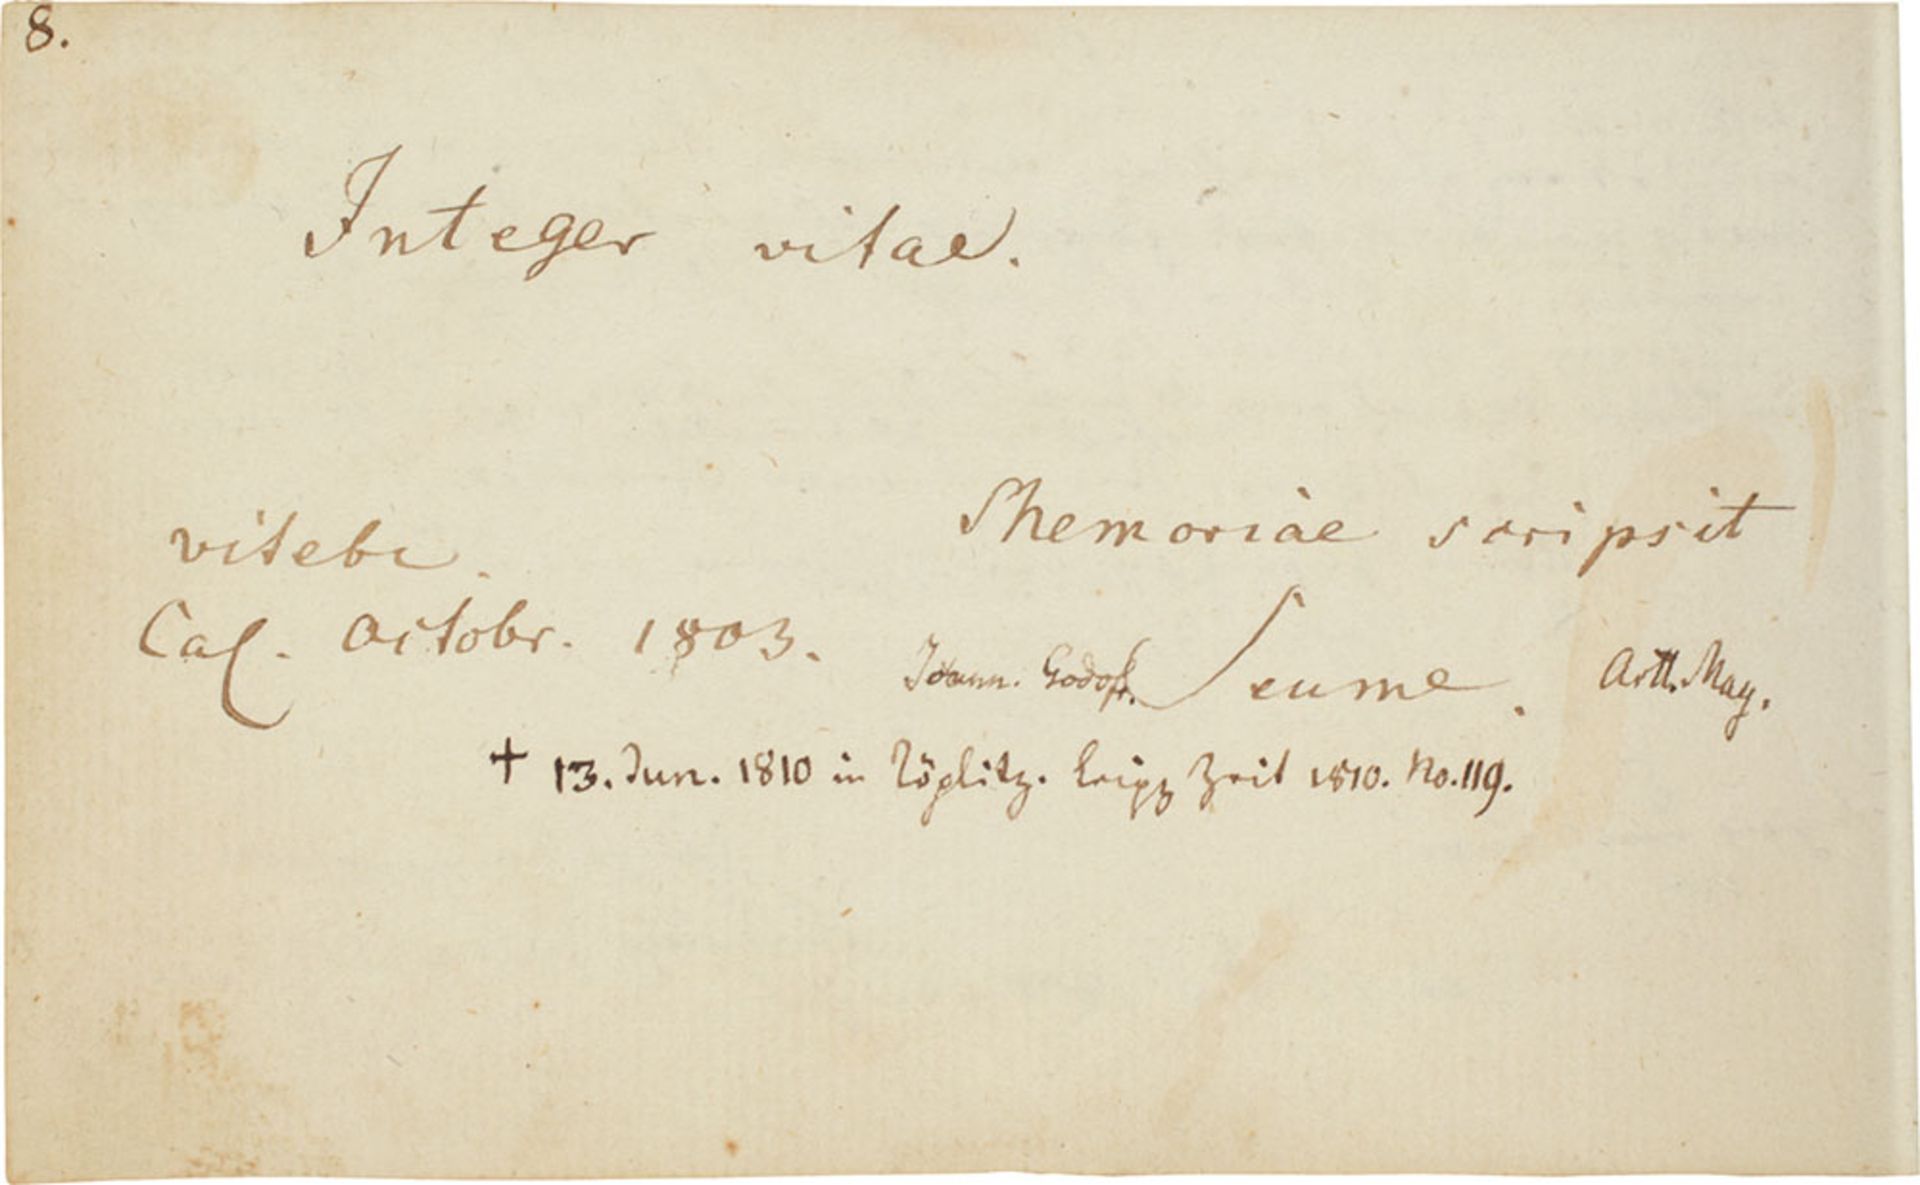 8.
Integer vitae.
Memoriae scripsit
Vitebr.
Cal. Octobr. 1803.
Joann. Godofr. Seume. Artt. Mag.
† 13. Jun. 1810 in Töplitz. Leipz Zeit 1810. No. 119.